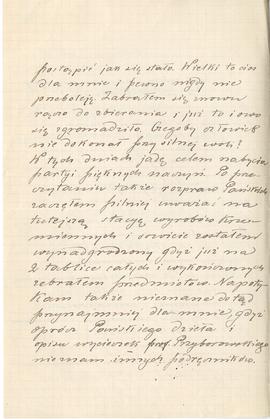 postąpić jak się stało. Wielki to cios
dla mnie i pewno nigdy nie
przeboleję. Zabrałem się znowu
raźno do zbierania i już to i owo
się zgromadziło. Czegoby człowiek
nie dokonał przy silnej woli?
W tych dniach jadę celem nabycia
partyi pięknych naczyń. Po prze-
czytaniu także rozpraw Pańskich
zacząłem pilniej uważać na
tutejszą stacyę wyrobów krze-
miennych i sowicie zostałem
wynadgrodzony gdyż już na
2 tablice całych i wykończonych
zebrałem przedmiotów. Napoty-
kam także nieznane dotąd
przynajmniej dla mnie, gdyż
oprócz Pańskiego dzieła i
opisu wycieczek prof. Przyborowskiego
nieznam innych podręczników.